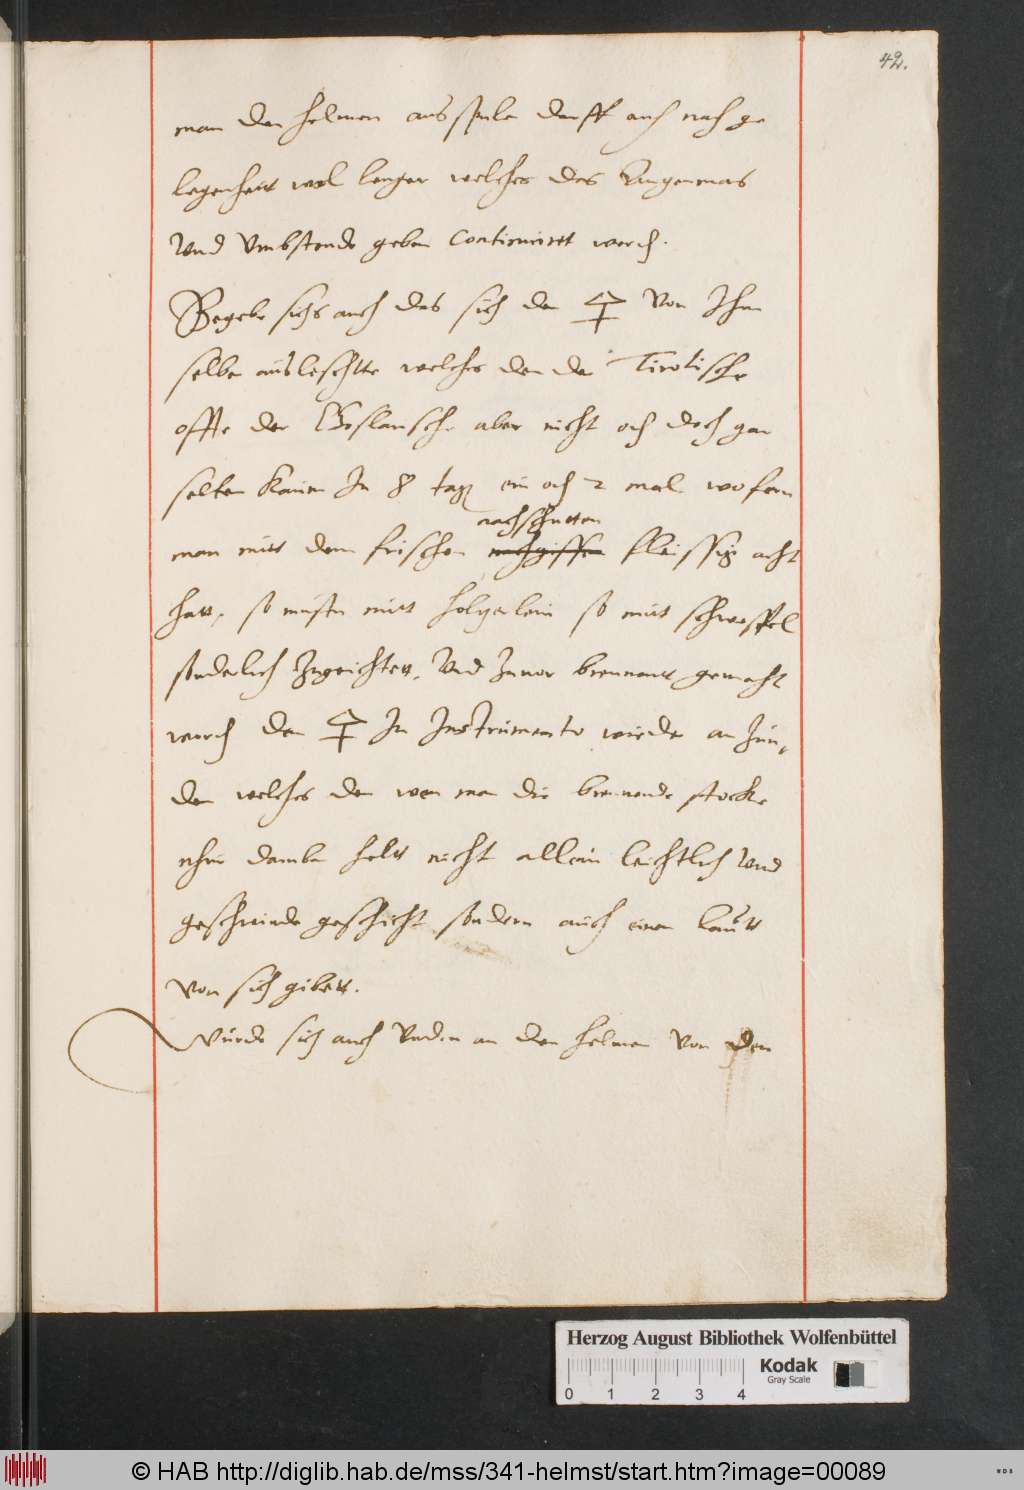 42.
man den helmen ausspüle darff auch nach ge
legenheit wol lenger welches das Augenmas
Vnd Vmbstende geben Continuirt werd.
Begebe sichs auch das sich der 🜍 Von Ihm
selber ausleschtte welches den der Tirolische
offte der Goslarische aber nicht och doch gar
selten kaum In 8 tag ein och 2 mal wofern
nachschutten
man mitt dem frischen nachgissen fleissig acht
hatt, so müsten mitt holtzerlein so mit schweffel
sonderlich Zugerichtett, Vnd Zuuor brennent gemacht
werd den 🜍 In Instrumento wieder an Zün,
den welches den wen man die brennende stocke
nhur darüber helt nicht allein leichtlich Vnd
geschwinde geschicht sondern auch einen lautt
Von sich gibett.
Würde sich auch Vnden an den helmen Von den
Herzog August Bibliothek Wolfenbüttel
Kodak
Gray Scale
0 1 2 3 4
© HAB http://diglib.hab.de/mss/341-helmst/start.htm?image=00089